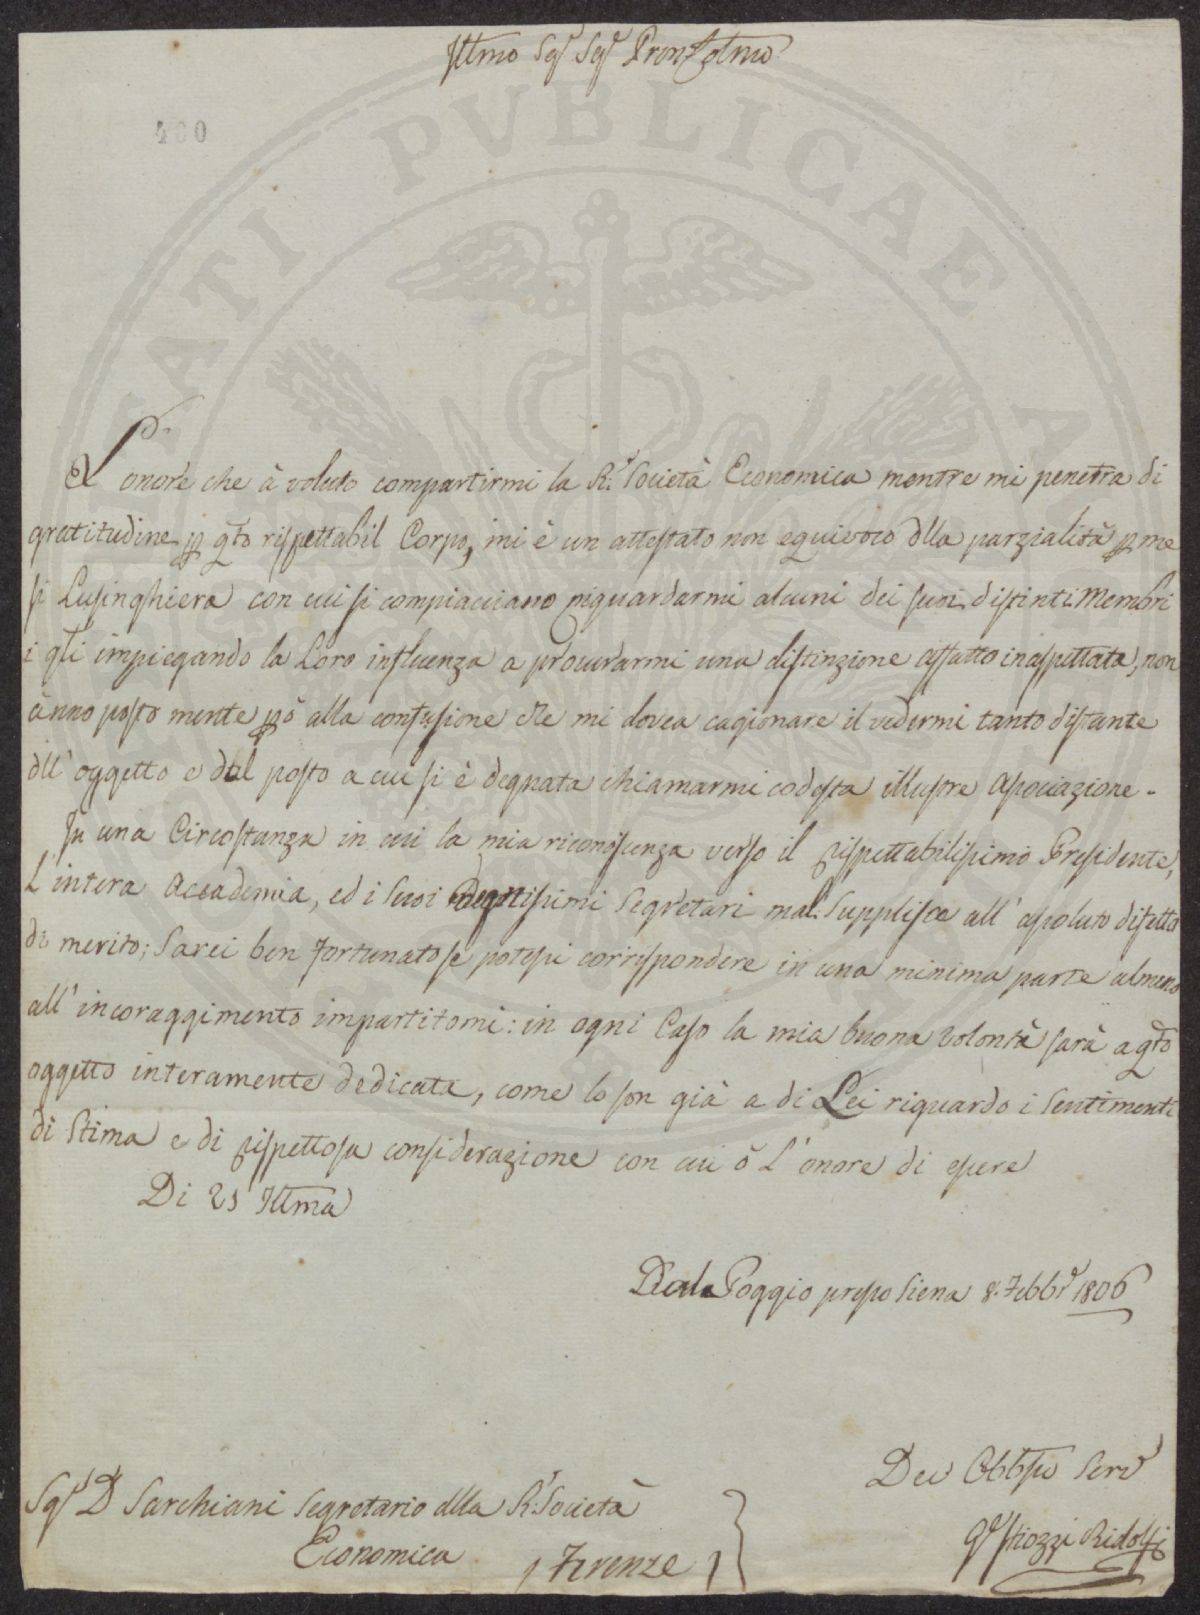 Illmo Sigr Sigr Pron Colmo
400
L'onore che à voluto compartirmi la R. Società Economica mentre mi penetra di
gratitudine p qto rispettabil Corpo, mi è un attestato non equivoco dlla parzialità p me
si Lusinghiera con cui si compiacciano riguardarmi alcuni dei suoi distinti Membri
i qli impiegando la Loro influenza a procurarmi una distinzione affatto inaspettata, non
ànno posto mente pò alla confusione che mi dovea cagionare il vedermi tanto distante
dll' oggetto e dal posto a cui si è degnata chiamarmi codesta illustre Associazione.
In una Circostanza in cui la mia riconoscenza verso il rispettabilissimo Presidente,
L'intera Accademia, ed i suoi Degnissimi Segretari mal supplisce all' assoluto difetto
di merito; Sarei ben fortunato se potessi corrispondere in una minima parte almeno
all' incoraggimento impartitomi: in ogni Caso la mia buona volontà sarà a qto
oggetto interamente dedicata, come lo son già a di Lei riguardo i sentimenti
di Stima e di rispettosa considerazione con cui ò L'onore di essere
Di VS Illma
Dal Poggio presso Siena 8. Febbr 1806
Dev Obbmo Serv
Strozzi Ridolfi
Sigr D Sarchiani Segretario dlla R. Società
Economica
Firenze
PVBLICAE